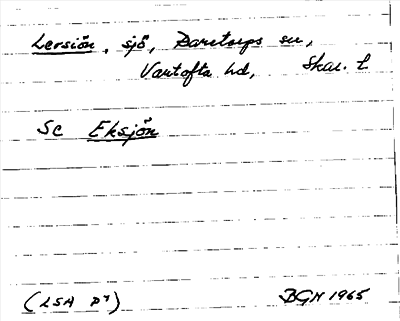 Lersiön, sjö, Daretorps sn,
Vartofta hd, Skar. l
Se Eksjön
(LSA P7)
BGN 1965